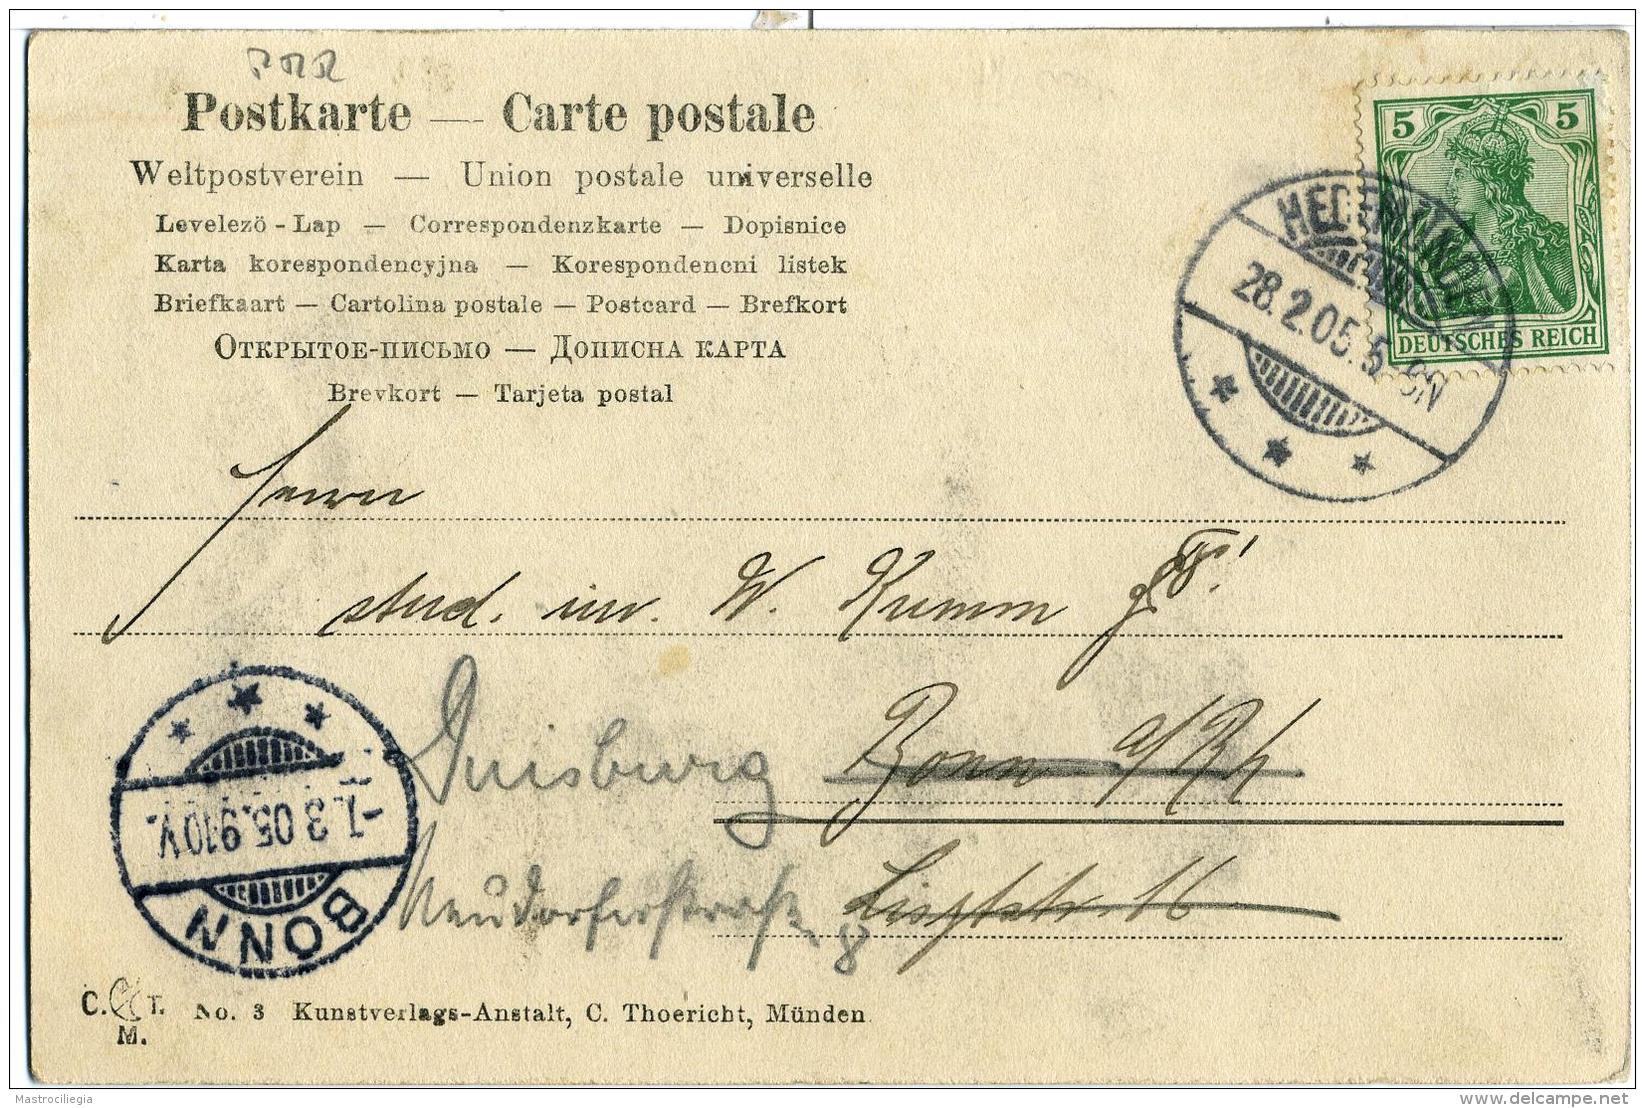 Postkarte — Carte postale
Weltpostverein — Union postale universelle
Levelezö - Lap — Correspondenzkarte — Dopisnice
Karta korespondencyjna — Korespondencni listek
Briefkaart — Cartolina postale — Postcard — Brefkort
Открытое-письмо — Дописна карта
Brevkort — Tarjeta postal
5 5
DEUTSCHES REICH
28.2.05.5-6N
Herrn
stud. iur. W. Krumm
Bonn a/Rh
Duisburg
Neudorferstrasse 8
16
-1.3.05.9-10V.
BONN
C. T. No. 3 Kunstverlags-Anstalt, C. Thoericht, Münden
M.
Mastrociliegia
www.delcampe.net